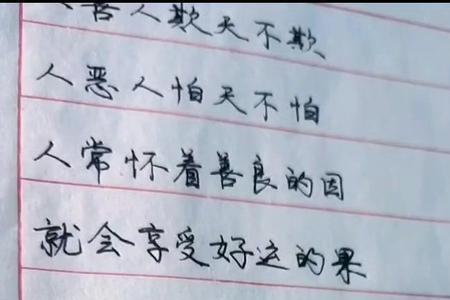 人善人欺天不欺
人恶人怕天不怕
人常怀着善良的因
就会享受好运的果